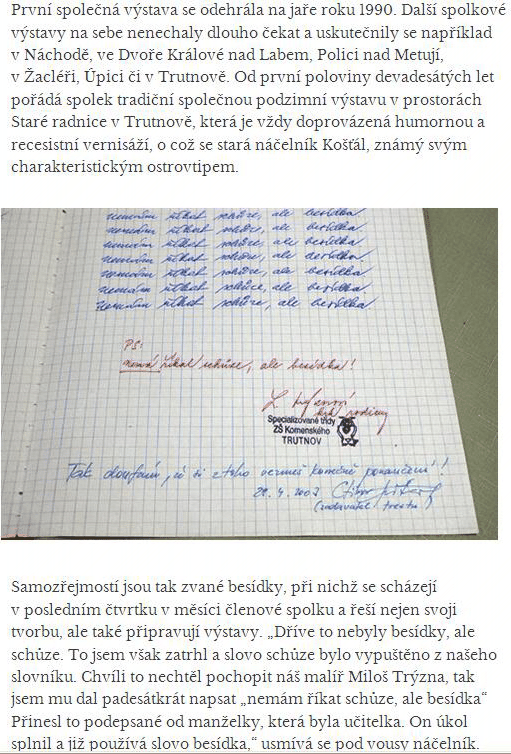 První společná výstava se odehrála na jaře roku 1990. Další spolkové
výstavy na sebe nenechaly dlouho čekat a uskutečnily se například
v Náchodě, ve Dvoře Králové nad Labem, Polici nad Metují,
v Žacléři, Úpici či v Trutnově. Od první poloviny devadesátých let
pořádá spolek tradiční společnou podzimní výstavu v prostorách
Staré radnice v Trutnově, která je vždy doprovázená humornou a
recesistní vernisáží, o což se stará náčelník Košťál, známý svým
charakteristickým ostrovtipem.
nemám říkat schůze, ale besídka
nemám říkat schůze, ale besídka
nemám říkat schůze, ale besídka
nemám říkat schůze, ale besídka
nemám říkat schůze, ale besídka
nemám říkat schůze, ale besídka
nemám říkat schůze, ale besídka
PS:
nemá říkat schůze, ale besídka!
Specializované třídy
ZŠ Komenského
TRUTNOV
Tak doufám, že si z toho vezmeš konečně ponaučení!!
2003
(zadavatel trestu)
Samozřejmostí jsou tak zvané besídky, při nichž se scházejí
v posledním čtvrtku v měsíci členové spolku a řeší nejen svoji
tvorbu, ale také připravují výstavy. „Dříve to nebyly besídky, ale
schůze. To jsem však zatrhl a slovo schůze bylo vypuštěno z našeho
slovníku. Chvíli to nechtěl pochopit náš malíř Miloš Trýzna, tak
jsem mu dal padesátkrát napsat „nemám říkat schůze, ale besídka“
Přinesl to podepsané od manželky, která byla učitelka. On úkol
splnil a již používá slovo besídka,“ usmívá se pod vousy náčelník.